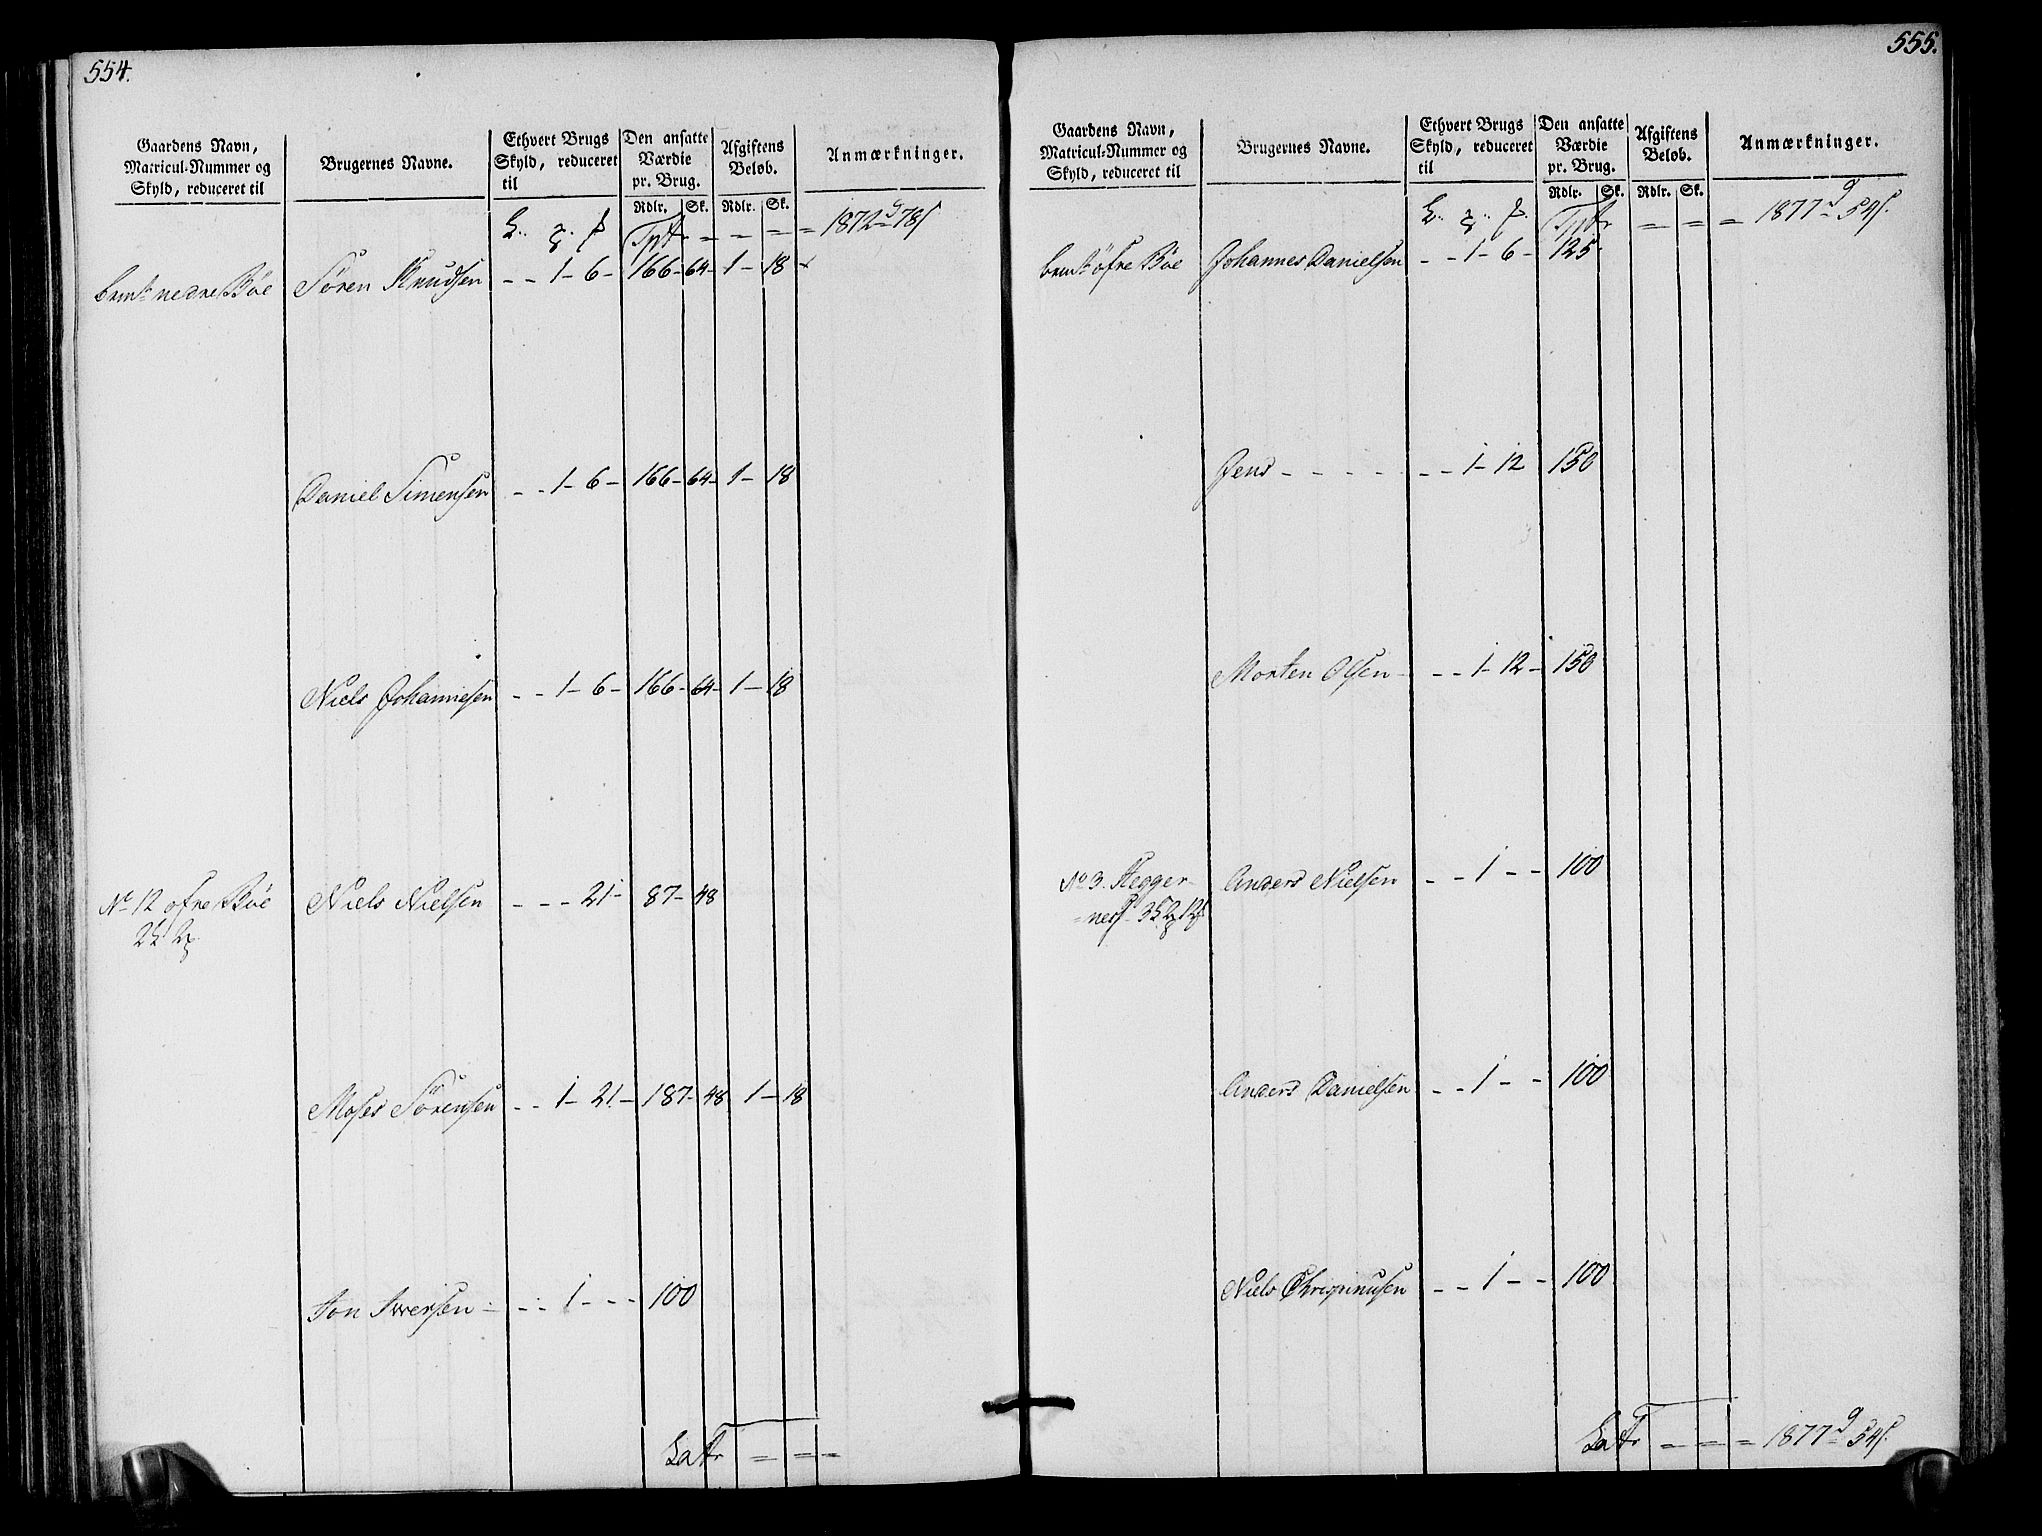 554.
Gaardens Navn, Matricul-Nummer og Skyld, reduceret til
Brugernes Navne.
Ethvert Brugs Skyld, reduceret til
Den ansatte Værdie pr. Brug.
Afgiftens Beløb.
Anmærkninger.
Rdlr. Sk. Rdlr. Sk.
Tptr - - - = 1872 d 78 s
bemte nedre Bøe Søren Knudsen - - 1 - 6 - 166 - 64 - 1 - 18
Daniel Simensen - - 1 - 6 - 166 - 64 - 1 - 18
Niels Johannesen - - 1 - 6 - 166 - 64 - 1 - 18
No 12 øfre Bøe Niels Nielsen - - - 21 - 87 - 48
Moses Sørensen - - 1 - 21 - 187 - 48 1 - 18
Jon Iwersen - - - 1 - - - 100
Latr = = =
555.
Gaardens Navn, Matricul-Nummer og Skyld, reduceret til
Brugernes Navne.
Ethvert Brugs Skyld, reduceret til
Den ansatte Værdie pr. Brug.
Afgiftens Beløb.
Anmærkninger.
Rdlr. Sk. Rdlr. Sk.
Tptr = = = 1877 d 54 s.
bemte øfre Bøe Johannes Danielsen - - 1 - 6 - 125
Jens - - - - - - 1 - 12 150
Morten Olsen - - - 1 - 12 - 150
No 3. Hegger- Anders Nielsen - - 1 - - 100
=nes
Anders Danielsen - - 1 - - 100
Niels - - 1 - - 100
Latr = = = 1877 d 54 s.